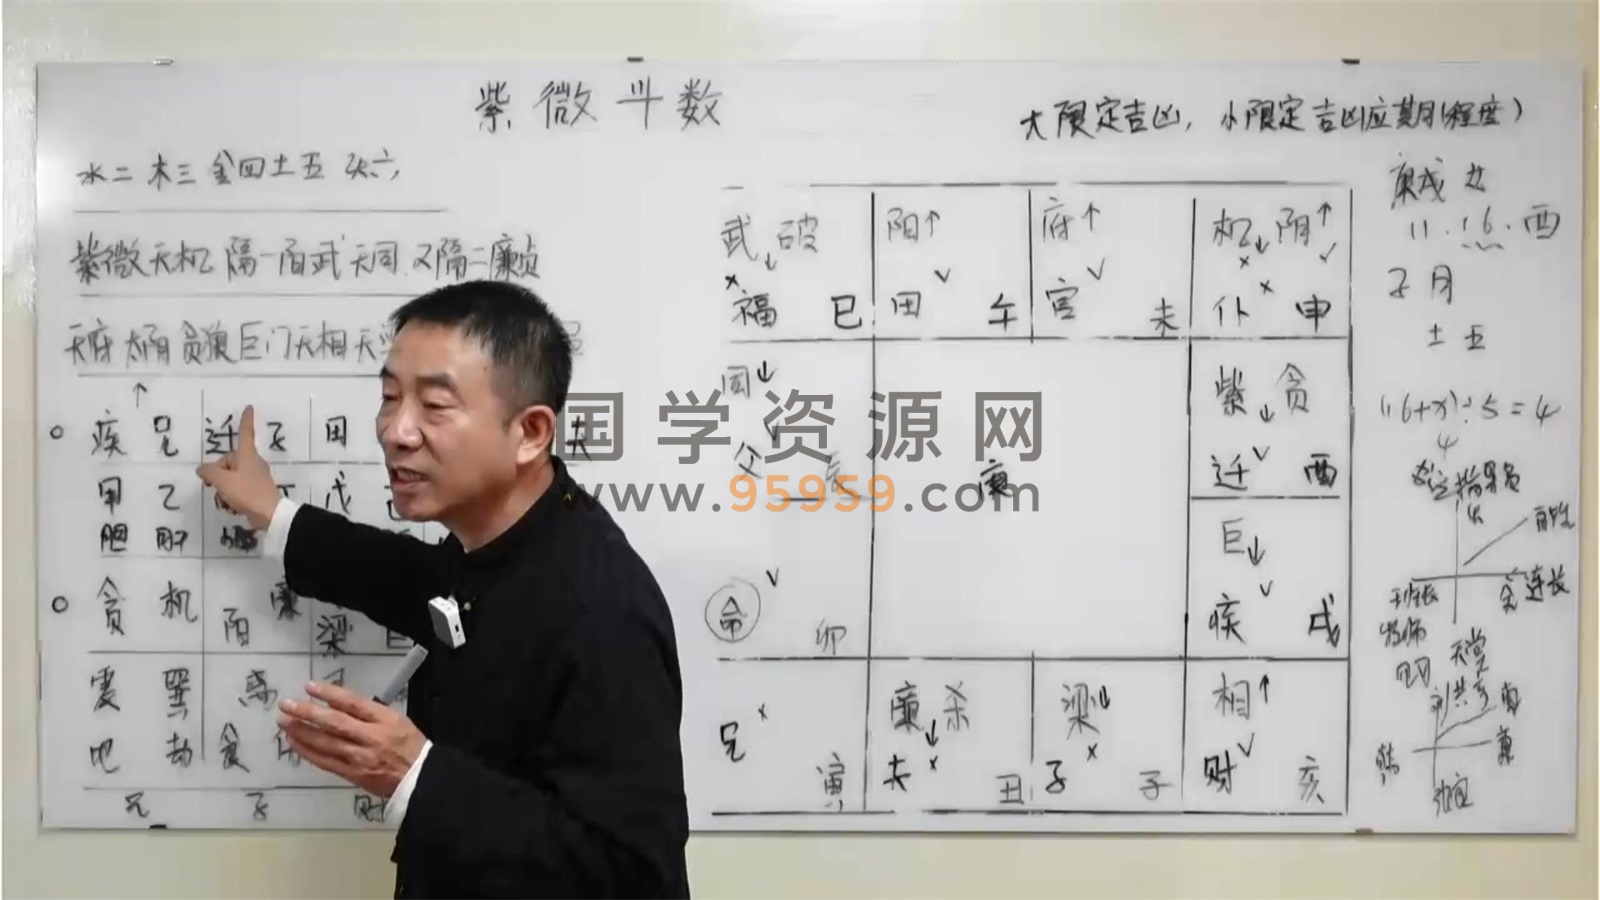 紫微斗数
大限定吉凶，小限定吉凶应期(程度)
水二 木三 金四土五 火六,
紫微天机 隔一阳武 天同 又隔二廉贞
天府 太阴 贪狼 巨门天相 天
疾 兄 迁 子 田 夫
甲 乙 戊
胆 肝
贪 机 阳 廉 梁 巨
震 巽
吧 劫 食
兄 子 财
武 破
福 巳
阳 ↑
田 午
府 ↑
官 未
机 阴
仆 申
同 ↓
父 辰
紫 贪
迁 酉
康
命 卯
巨 ↓
疾 戌
兄 寅
廉 杀
夫 丑
梁 ↓
子 子
相 ↑
财 亥
庚戌 女
11.16.酉
子月
土五
(16+x)÷5=4
4
指导员
连长
天堂
国学资源网
www.95959.com